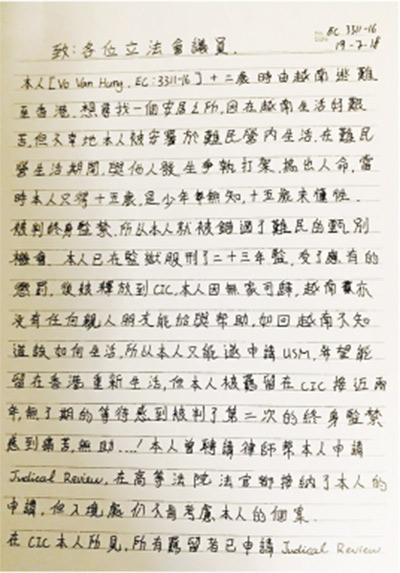 EC 3311-16
19-7-18
致:各位立法會議員.
本人[Vo Van Hung, EC:3311-16]十二歲時由越南逃難
至香港,想尋找一個安居之所,因在越南生活艱難
苦,但不幸地本人被安置於難民營內生活,在難民
營生活期間,與他人發生爭執打架,搞出人命,當
時本人只得十五歲,是少年無知,十五歲未懂性.
被判終身監禁,所以本人就被錯過了難民的甄別
機會.本人已在監獄服刑了二十三年監,受了應有的
懲罰,後被釋放到CIC,本人因無家可歸,越南裏亦
沒有任何親人朋友能給與幫助,如回越南不知
道該如何生活,所以本人只能遞申請USM,希望能
留在香港重新生活,但本人被羈留在CIC接近兩
年,無了期的等待感到被判了第二次的終身監禁
感到痛苦,無助....!本人曾聘請律師幫本人申請
Judical Review,在高等法院法官都接納了本人的
申請,但入境處仍不肯考慮本人的個案.
在CIC本人所見,所有羈留者已申請Judical Review